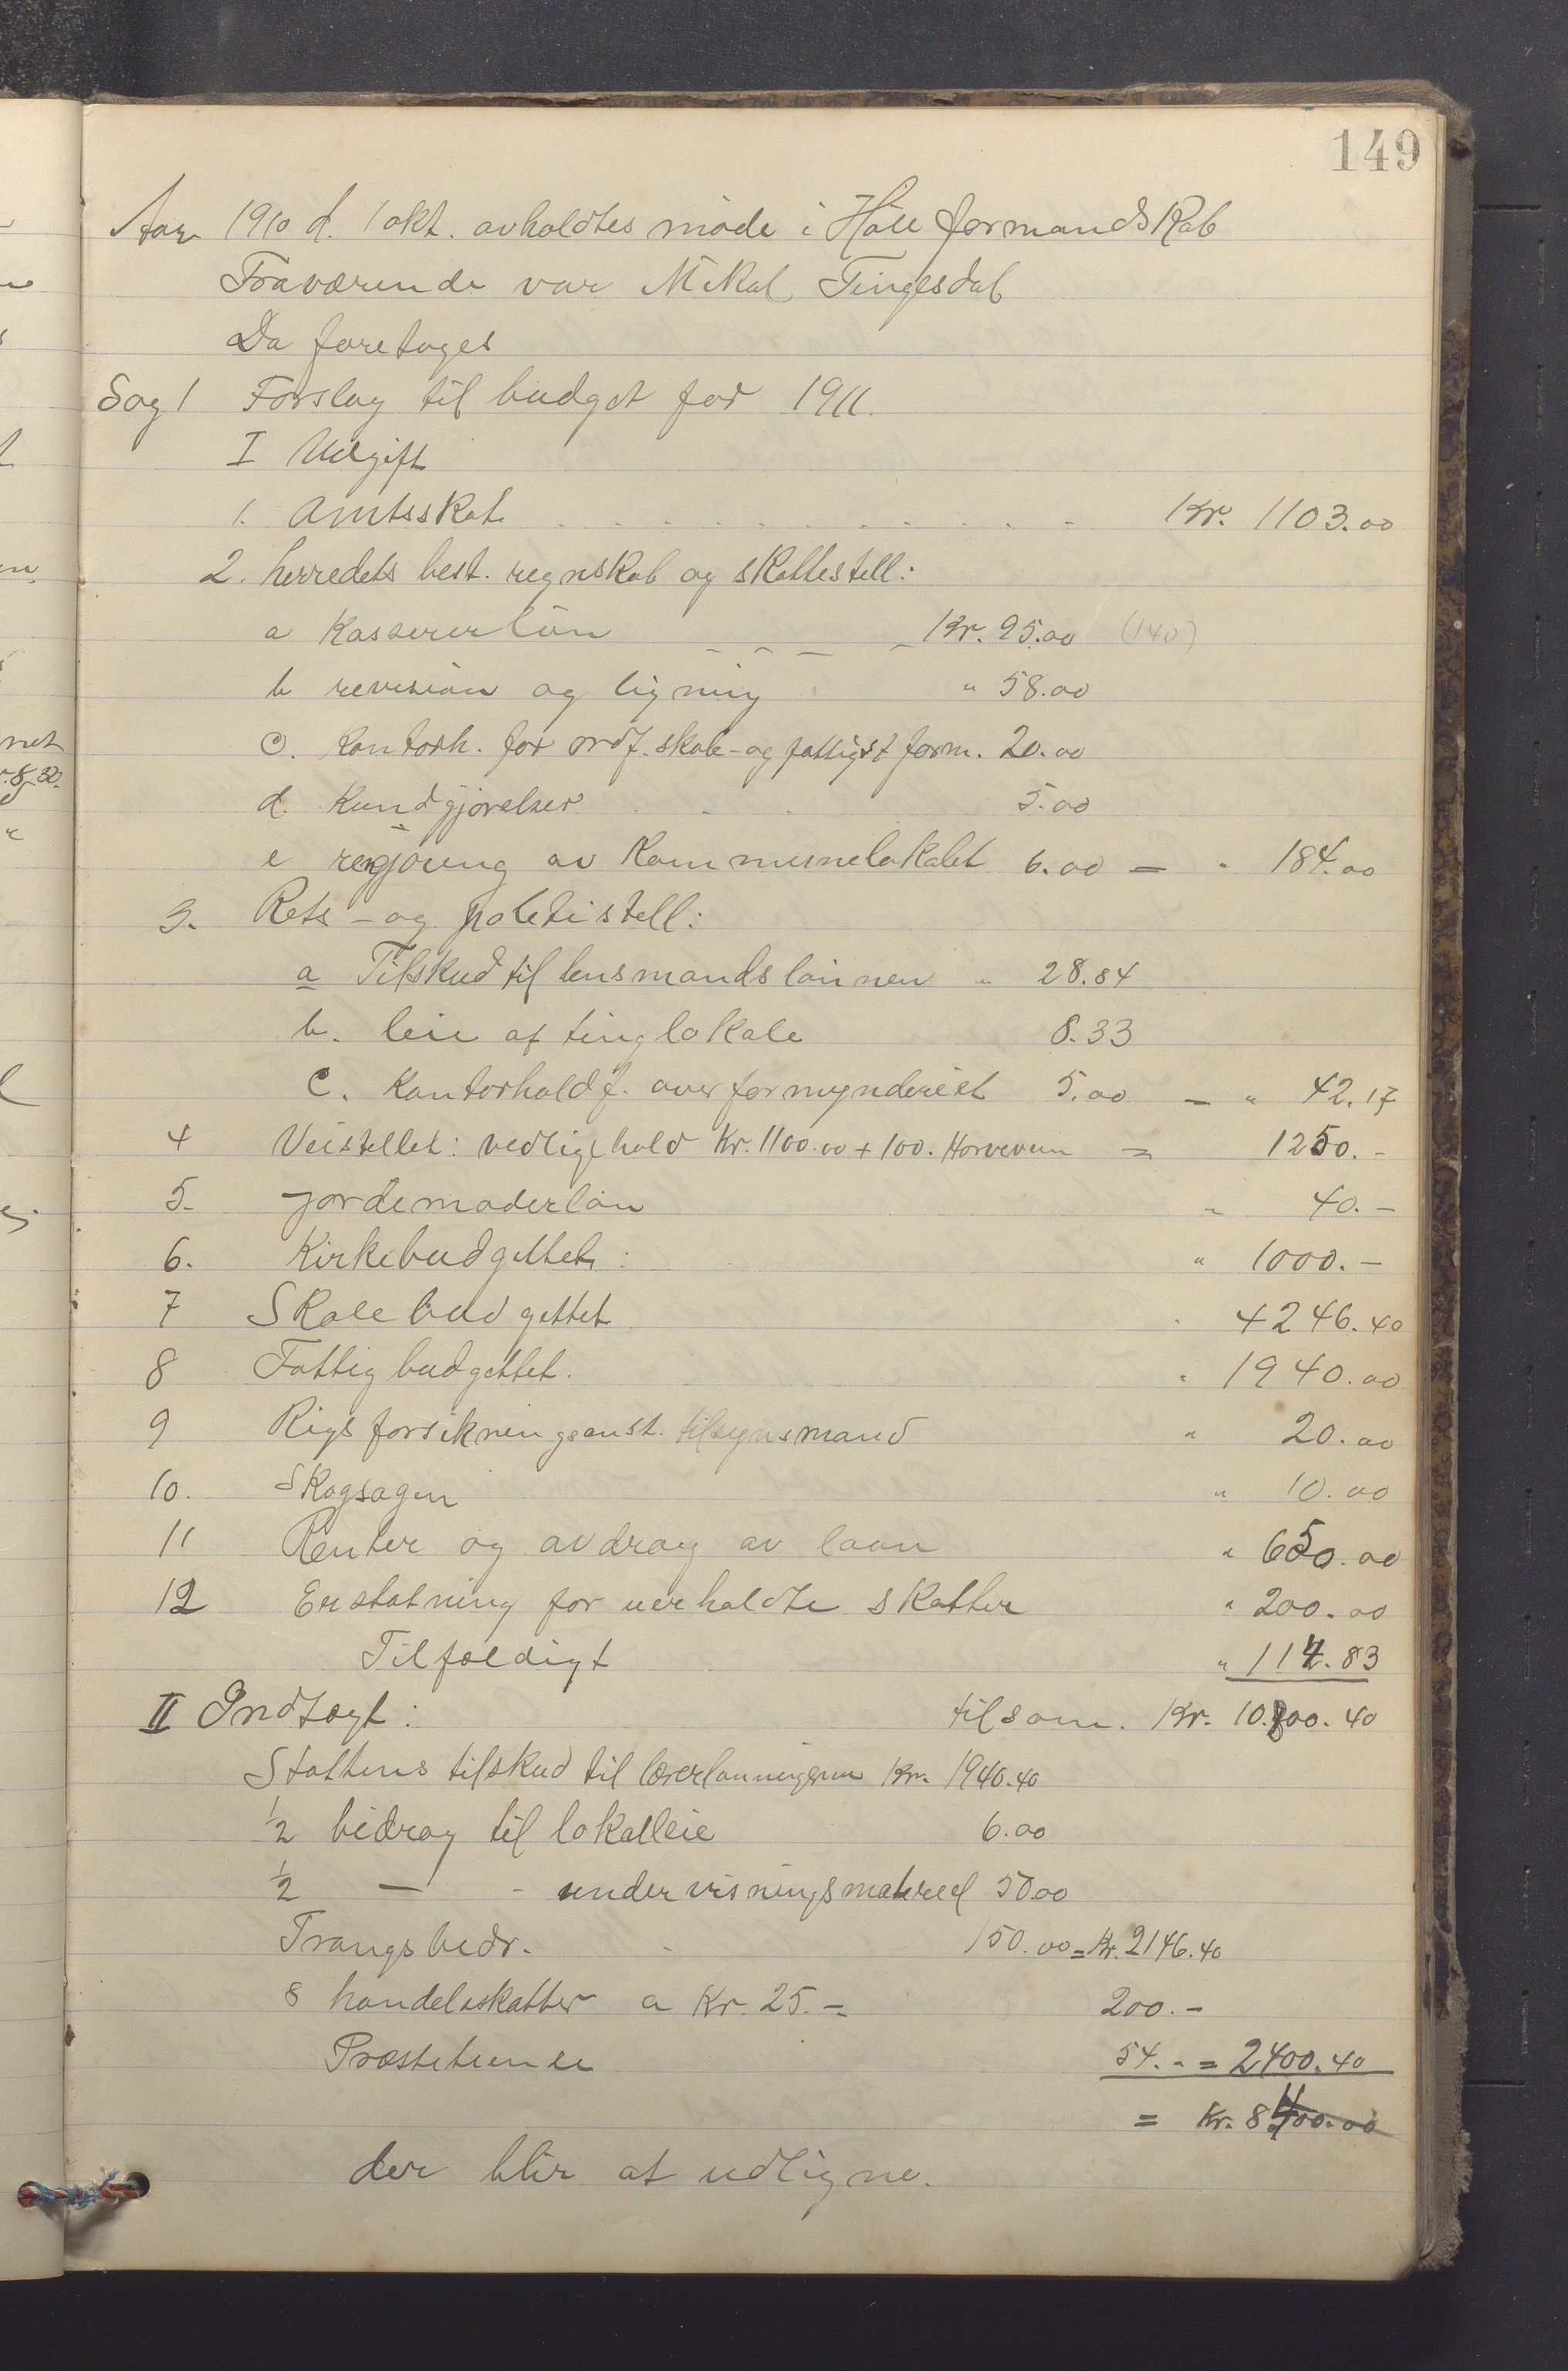 149
Aar 1910 d. 1 okt. avholdtes møde i Høle formandskab
Fraværende var Mikal Tingesdal
Da foretoges
Sag 1 Forslag til budget for 1911.
I Udgift
1. Amtsskat Kr. 1103.00
2. herredets best. regnskab og skattestell:
a Kassererløn Kr. 95.00 (140)
b revision og ligning " 58.00
c. Kontorh. for ordf. skole- og fattigst form. 20.00
d. Kundgjørelser 5.00
e rengjøring av Kommunelokalet 6.00 = " 184.00
3. Rets- og politistell:
a Tilskud til lensmandslønnen " 28.84
b. leie af tinglokale 8.33
c. Kontorhold f. overformynderiet 5.00 = " 42.17
4 Veistellet: vedligehold Kr. 1100.00 + 100. = 1250.-
5. Jordemoderløn " 40.-
6. Kirkebudgettet: " 1000.-
7 Skolebudgettet " 4246.40
8 Fattigbudgettet. " 1940.00
9 Rigsforsikringsanst. tilsynsmand " 20.00
10. Skogsagen " 10.00
11 Renter og avdrag av laan " 650.00
12 Erstatning for uerholdte skatter " 200.00
Tilfældigt " 114.83
II Indtægt: tilsam. Kr. 10.800.40
Stattens tilskud til lærerlønningerne Kr. 1940.40
1/2 bidrag til lokalleie 6.00
1/2 — - undervisningsmateriel 50.00
Trangsbidr. 150.00 = Kr. 2146.40
8 handelsskatter a Kr. 25.- = 200.-
Præstetiende 54.- = 2400.40
= Kr. 8400.00
der blir at udligne.